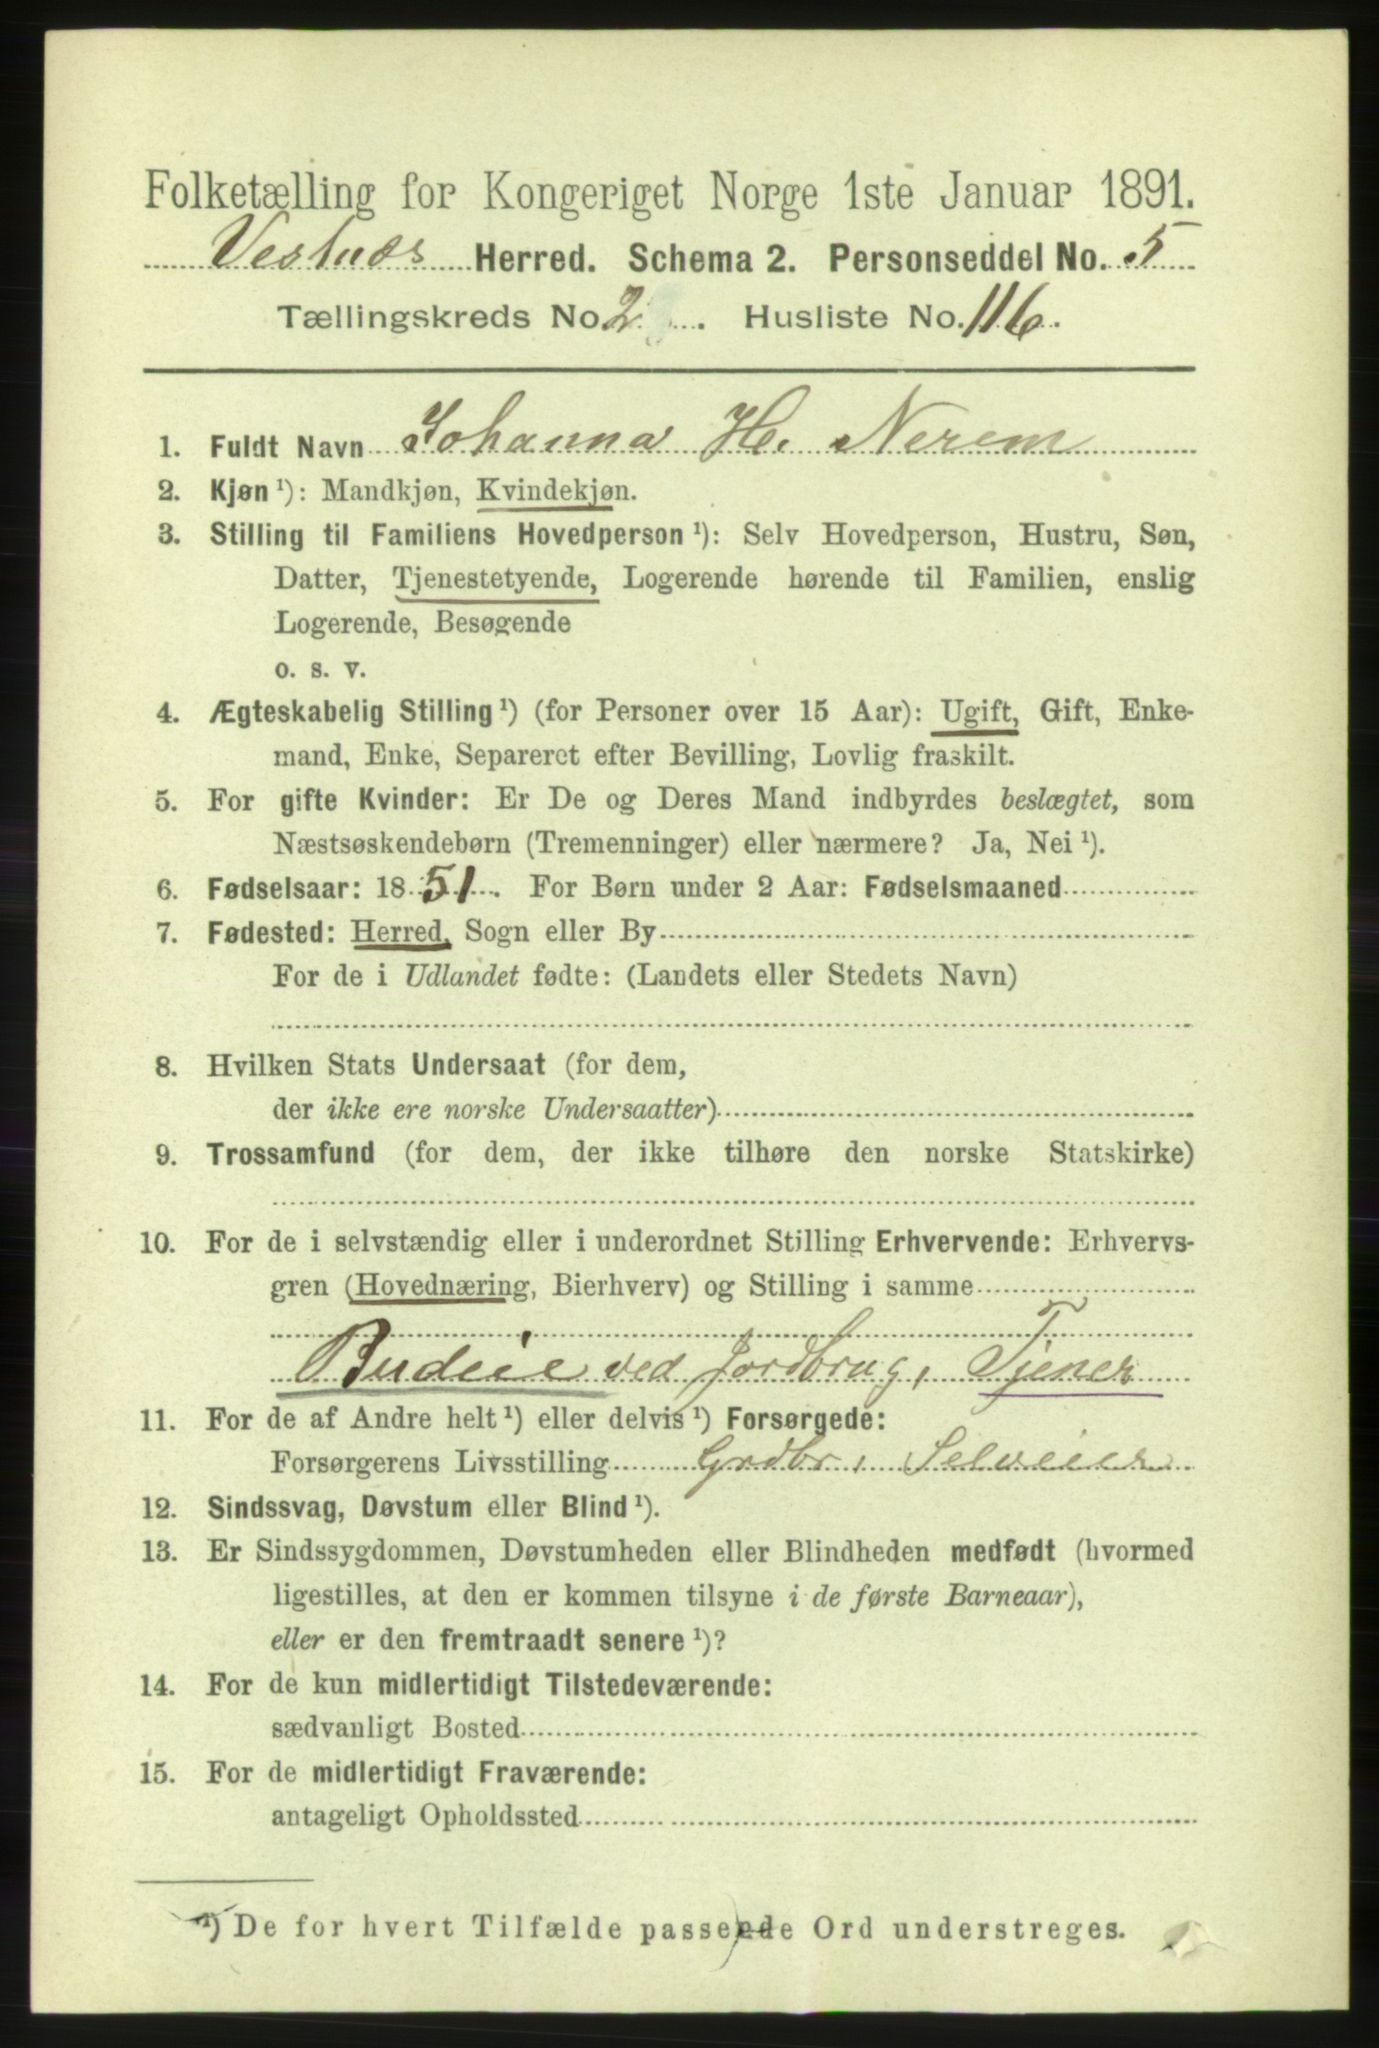 Folketælling for Kongeriget Norge 1ste Januar 1891.
Vestnæs Herred. Schema 2. Personseddel No. 5
Tællingskreds No. 2. Husliste No. 116.
1. Fuldt Navn Johanna H. Nerem
2. Kjøn ¹): Mandkjøn, Kvindekjøn.
3. Stilling til Familiens Hovedperson ¹): Selv Hovedperson, Hustru, Søn,
Datter, Tjenestetyende, Logerende hørende til Familien, enslig
Logerende, Besøgende
o. s. v.
4. Ægteskabelig Stilling ¹) (for Personer over 15 Aar): Ugift, Gift, Enke-
mand, Enke, Separeret efter Bevilling, Lovlig fraskilt.
5. For gifte Kvinder: Er De og Deres Mand indbyrdes beslægtet, som
Næstsøskendebørn (Tremenninger) eller nærmere? Ja, Nei ¹).
6. Fødselsaar: 1851. For Børn under 2 Aar: Fødselsmaaned
7. Fødested: Herred, Sogn eller By
For de i Udlandet fødte: (Landets eller Stedets Navn)
8. Hvilken Stats Undersaat (for dem,
der ikke ere norske Undersaatter)
9. Trossamfund (for dem, der ikke tilhøre den norske Statskirke)
10. For de i selvstændig eller i underordnet Stilling Erhvervende: Erhvervs-
gren (Hovednæring, Bierhverv) og Stilling i samme
Budeie ved Jordbrug, Tjener
11. For de af Andre helt ¹) eller delvis ¹) Forsørgede:
Forsørgerens Livsstilling Grdbr, Selveier
12. Sindssvag, Døvstum eller Blind ¹).
13. Er Sindssygdommen, Døvstumheden eller Blindheden medfødt (hvormed
ligestilles, at den er kommen tilsyne i de første Barneaar),
eller er den fremtraadt senere ¹)?
14. For de kun midlertidigt Tilstedeværende:
sædvanligt Bosted
15. For de midlertidigt Fraværende:
antageligt Opholdssted
¹) De for hvert Tilfælde passende Ord understreges.